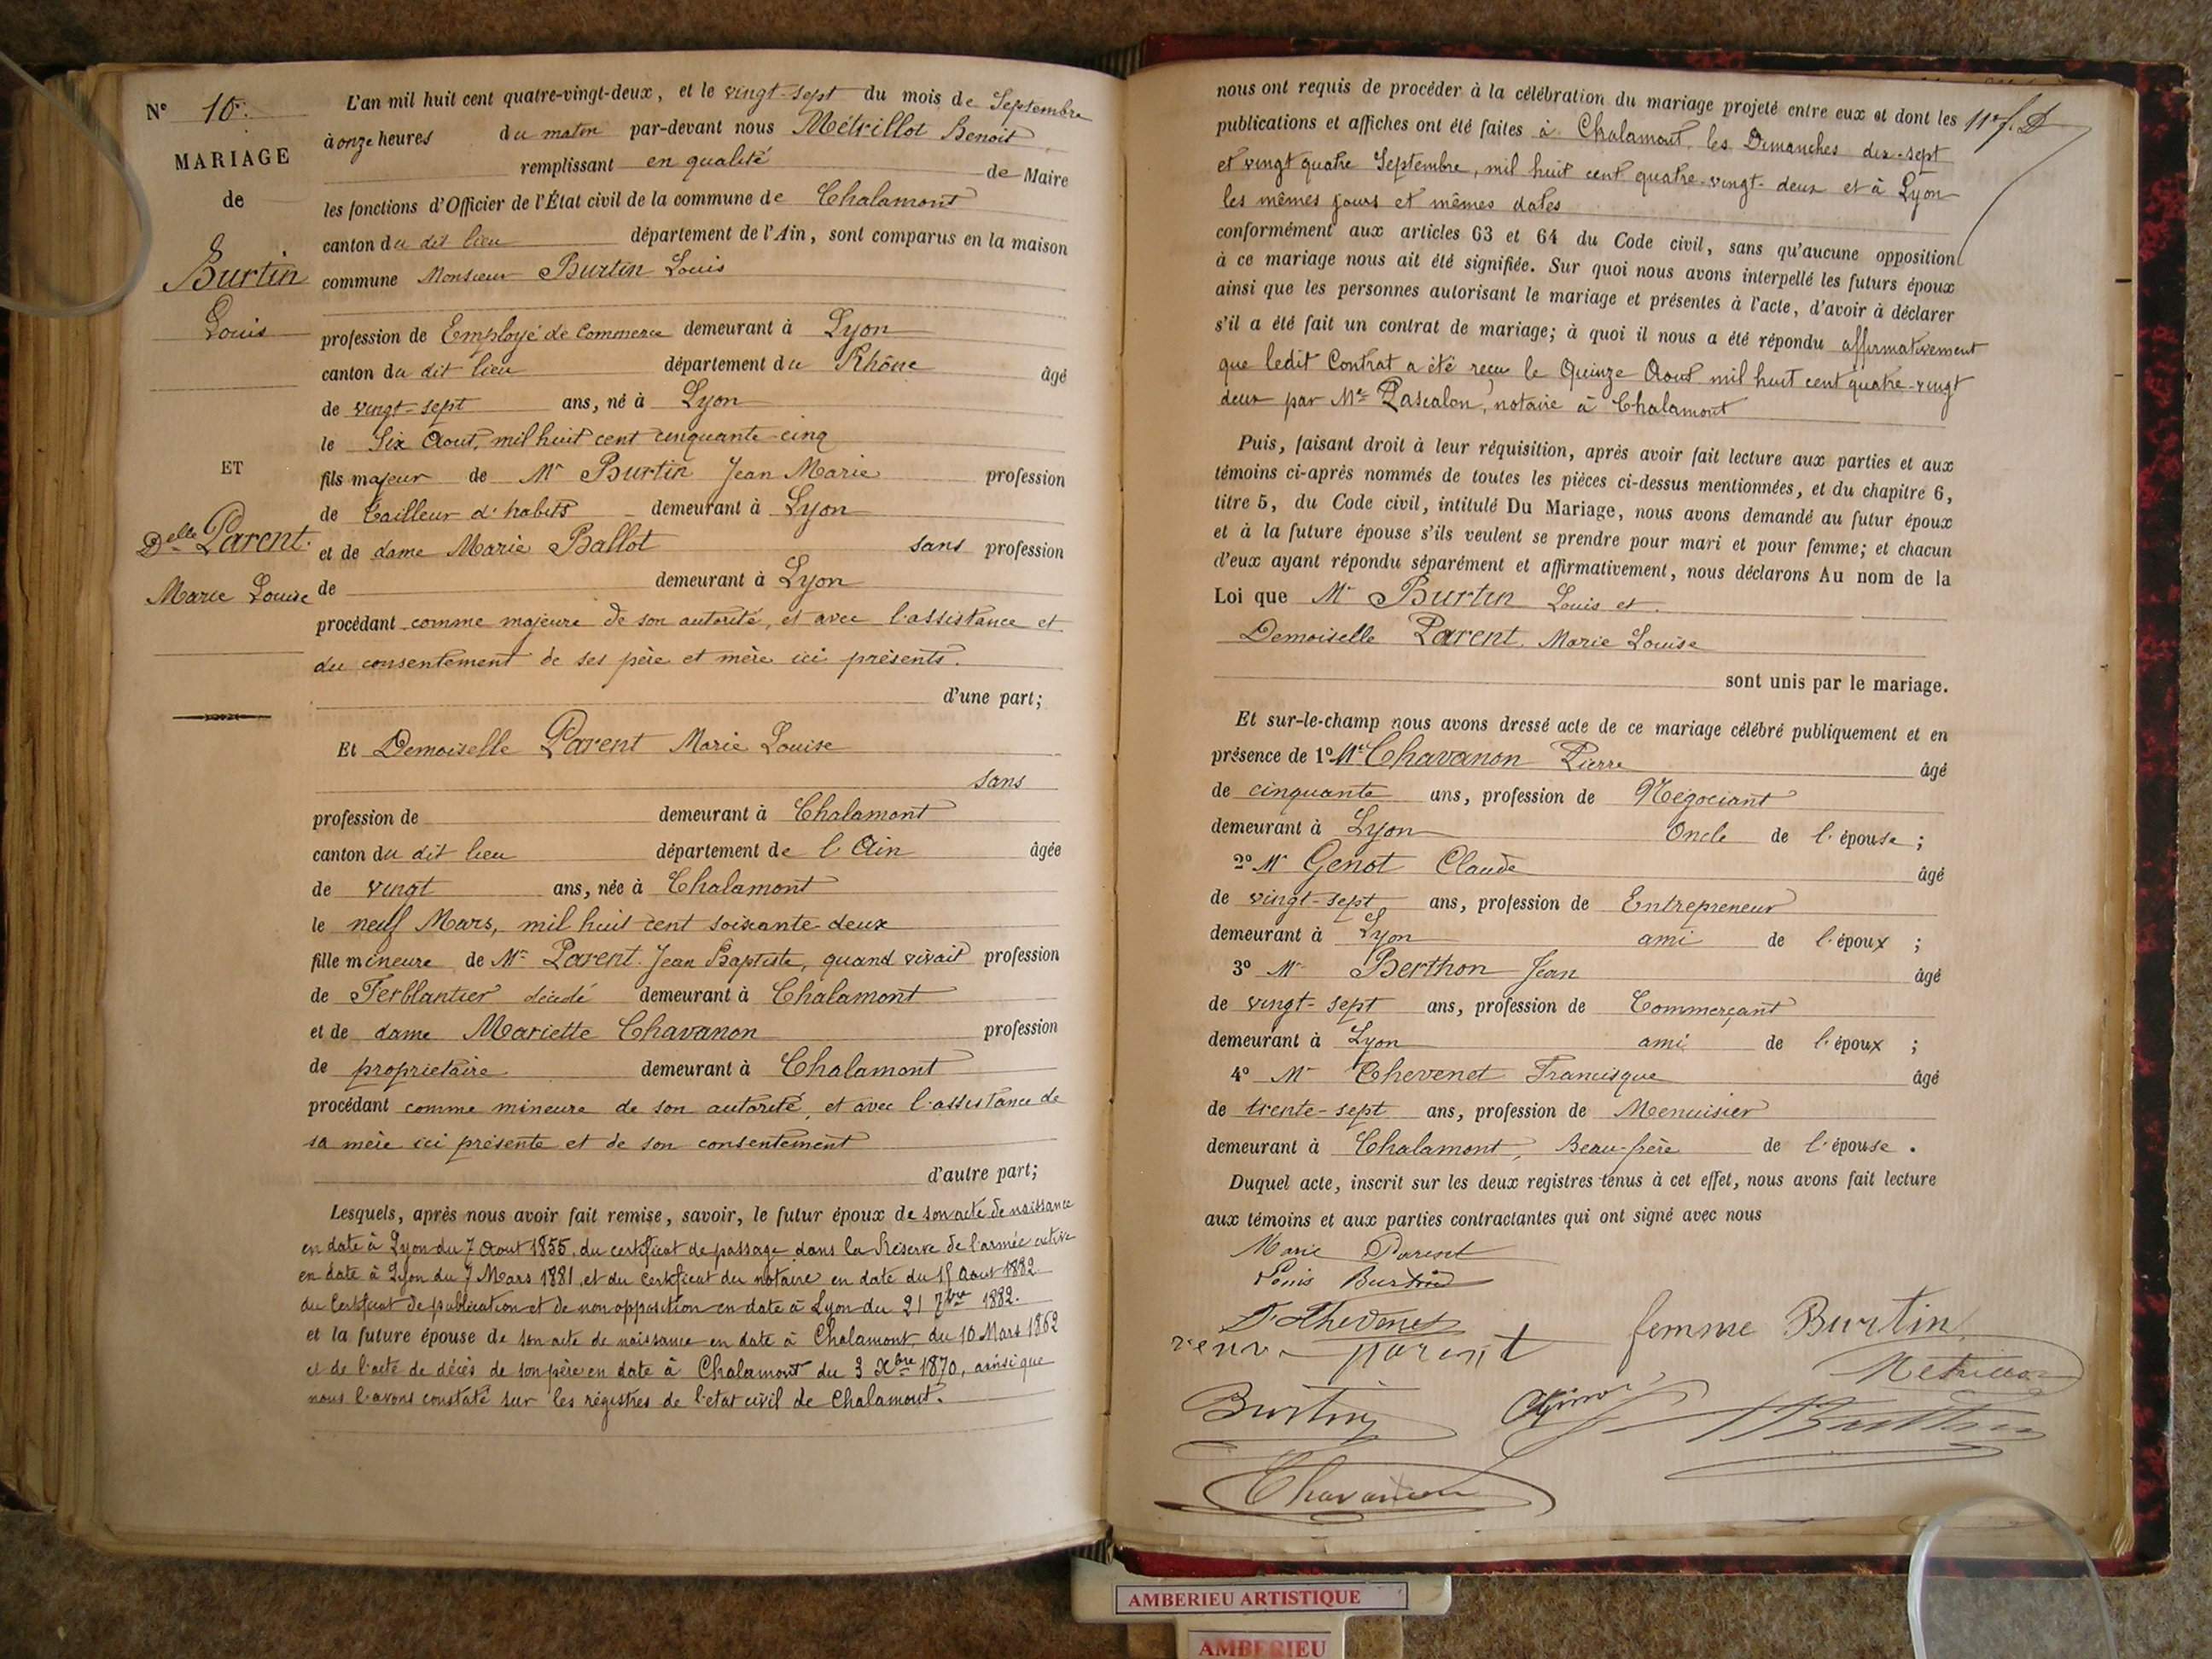 N° 10.
MARIAGE
de
Burtin
Louis
ET
Delle Parent.
Marie Louise
L'an mil huit cent quatre-vingt-deux, et le vingt-sept du mois de Septembre
à onze heures du matin par-devant nous Métrillot Benoit
remplissant en qualité de Maire
les fonctions d'Officier de l'État civil de la commune de Chalamont
canton du dit lieu département de l'Ain, sont comparus en la maison
commune Monsieur Burtin Louis
profession de Employé de Commerce demeurant à Lyon
canton du dit lieu département du Rhône âgé
de vingt-sept ans, né à Lyon
le Six Aout, mil huit cent cinquante-cinq
fils majeur de Mr Burtin Jean Marie profession
de tailleur d'habits demeurant à Lyon
et de dame Marie Ballot sans profession
de demeurant à Lyon
procédant comme majeure de son autorité, et avec l'assistance et
du consentement de ses père et mère ici présents.
d'une part;
Et Demoiselle Parent Marie Louise
sans
profession de demeurant à Chalamont
canton du dit lieu département de l'Ain âgée
de vingt ans, née à Chalamont
le neuf Mars, mil huit cent soixante-deux
fille mineure de Mr Parent Jean Baptiste, quand vivait profession
de Ferblantier décédé demeurant à Chalamont
et de dame Mariette Chavanon profession
de propriétaire demeurant à Chalamont
procédant comme mineure de son autorité, et avec l'assistance de
sa mère ici présente et de son consentement
d'autre part;
Lesquels, après nous avoir fait remise, savoir, le futur époux de son acte de naissance
en date à Lyon du 7 Aout 1855, du certificat de passage dans la Réserve de l'armée active
en date à Lyon du 7 Mars 1881, et du certificat du notaire en date du 15 Aout 1882
du Certificat de publication et de non opposition en date à Lyon du 21 7bre 1882.
et la future épouse de son acte de naissance en date à Chalamont du 10 Mars 1862
et de l'acte de décès de son père en date à Chalamont du 3 Xbre 1870, ainsi que
nous l'avons constaté sur les régistres de l'etat civil de Chalamont.
nous ont requis de procéder à la célébration du mariage projeté entre eux et dont les
publications et affiches ont été faites à Chalamont, les Dimanches dix-sept
et vingt quatre Septembre, mil huit cent quatre-vingt-deux et à Lyon
les mêmes jours et mêmes dates
conformément aux articles 63 et 64 du Code civil, sans qu'aucune opposition
à ce mariage nous ait été signifiée. Sur quoi nous avons interpellé les futurs époux
ainsi que les personnes autorisant le mariage et présentes à l'acte, d'avoir à déclarer
s'il a été fait un contrat de mariage; à quoi il nous a été répondu affirmativement
que ledit Contrat a été reçu le Quinze Aout mil huit cent quatre-vingt
deux par Me Pascalon, notaire à Chalamont
Puis, faisant droit à leur réquisition, après avoir fait lecture aux parties et aux
témoins ci-après nommés de toutes les pièces ci-dessus mentionnées, et du chapitre 6,
titre 5, du Code civil, intitulé Du Mariage, nous avons demandé au futur époux
et à la future épouse s'ils veulent se prendre pour mari et pour femme; et chacun
d'eux ayant répondu séparément et affirmativement, nous déclarons Au nom de la
Loi que Mr Burtin Louis et
Demoiselle Parent Marie Louise
sont unis par le mariage.
Et sur-le-champ nous avons dressé acte de ce mariage célébré publiquement et en
présence de 1° Mr Chavanon Pierre âgé
de cinquante ans, profession de Négociant
demeurant à Lyon Oncle de l'épouse;
2° Mr Genot Claude âgé
de vingt-sept ans, profession de Entrepreneur
demeurant à Lyon ami de l'époux;
3° Mr Berthon Jean âgé
de vingt-sept ans, profession de Commerçant
demeurant à Lyon ami de l'époux;
4° Mr Chevenet Francisque âgé
de trente-sept ans, profession de Menuisier
demeurant à Chalamont, Beau-frère de l'épouse.
Duquel acte, inscrit sur les deux registres tenus à cet effet, nous avons fait lecture
aux témoins et aux parties contractantes qui ont signé avec nous
Marie Parent
Louis Burtin
F. Chevenet
veuve parent femme Burtin
Métrillot
Burtin
Chavanon
AMBERIEU ARTISTIQUE
AMBERIEU